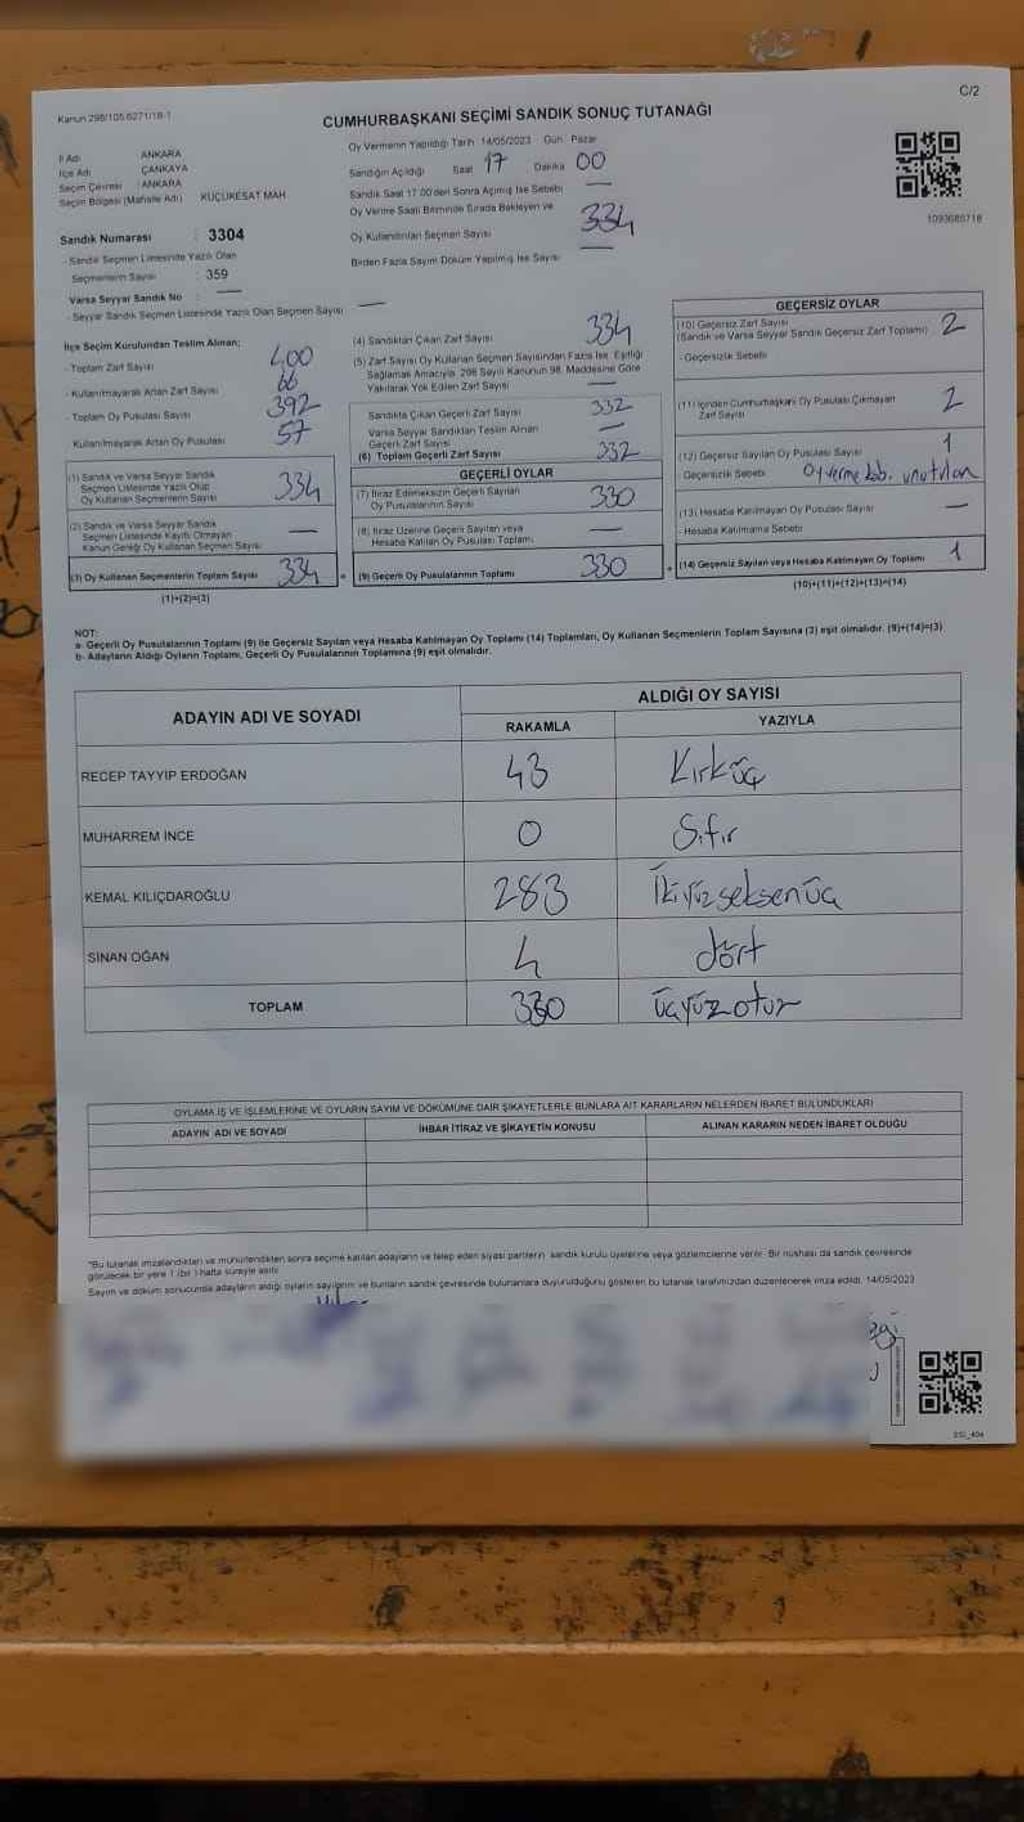 C/2
Kanun 298/105 6271/18-1
CUMHURBAŞKANI SEÇİMİ SANDIK SONUÇ TUTANAĞI
Oy Vermenin Yapıldığı Tarih 14/05/2023 Gün Pazar
İl Adı ANKARA
İlçe Adı ÇANKAYA
Seçim Çevresi : ANKARA
Seçim Bölgesi (Mahalle Adı) KÜÇÜKESAT MAH
Sandığın Açıldığı Saat 17 Dakika 00
Sandık Saat 17 00'den Sonra Açılmış İse Sebebi —
Oy Verme Saati Bitiminde Sırada Bekleyen ve
Oy Kullandırılan Seçmen Sayısı 334
Birden Fazla Sayım Döküm Yapılmış İse Sayısı —
1093688718
Sandık Numarası : 3304
- Sandık Seçmen Listesinde Yazılı Olan
Seçmenlerin Sayısı : 359
Varsa Seyyar Sandık No : —
- Seyyar Sandık Seçmen Listesinde Yazılı Olan Seçmen Sayısı —
İlçe Seçim Kurulundan Teslim Alınan;
- Toplam Zarf Sayısı 400
- Kullanılmayarak Artan Zarf Sayısı 66
- Toplam Oy Pusulası Sayısı 392
Kullanılmayarak Artan Oy Pusulası 57
(1) Sandık ve Varsa Seyyar Sandık
Seçmen Listesinde Yazılı Olup
Oy Kullanan Seçmenlerin Sayısı 334
(2) Sandık ve Varsa Seyyar Sandık
Seçmen Listesinde Kayıtlı Olmayan
Kanun Gereği Oy Kullanan Seçmen Sayısı —
(3) Oy Kullanan Seçmenlerin Toplam Sayısı 334
(1)+(2)=(3)
(4) Sandıktan Çıkan Zarf Sayısı 334
(5) Zarf Sayısı Oy Kullanan Seçmen Sayısından Fazla İse, Eşitliği
Sağlamak Amacıyla, 298 Sayılı Kanunun 98. Maddesine Göre
Yakılarak Yok Edilen Zarf Sayısı —
Sandıkta Çıkan Geçerli Zarf Sayısı 332
Varsa Seyyar Sandıktan Teslim Alınan
Geçerli Zarf Sayısı —
(6) Toplam Geçerli Zarf Sayısı 332
GEÇERLİ OYLAR
(7) İtiraz Edilmeksizin Geçerli Sayılan
Oy Pusulalarının Sayısı 330
(8) İtiraz Üzerine Geçerli Sayılan veya
Hesaba Katılan Oy Pusulası Toplamı —
(9) Geçerli Oy Pusulalarının Toplamı 330
GEÇERSİZ OYLAR
(10) Geçersiz Zarf Sayısı
(Sandık ve Varsa Seyyar Sandık Geçersiz Zarf Toplamı) 2
- Geçersizlik Sebebi
(11) İçinden Cumhurbaşkanı Oy Pusulası Çıkmayan
Zarf Sayısı 2
(12) Geçersiz Sayılan Oy Pusulası Sayısı 1
Geçersizlik Sebebi Oy verme kab. unutulan
(13) Hesaba Katılmayan Oy Pusulası Sayısı —
- Hesaba Katılmama Sebebi
(14) Geçersiz Sayılan veya Hesaba Katılmayan Oy Toplamı 1
(10)+(11)+(12)+(13)=(14)
NOT:
a- Geçerli Oy Pusulalarının Toplamı (9) ile Geçersiz Sayılan veya Hesaba Katılmayan Oy Toplamı (14) Toplamları, Oy Kullanan Seçmenlerin Toplam Sayısına (3) eşit olmalıdır. (9)+(14)=(3)
b- Adayların Aldığı Oyların Toplamı, Geçerli Oy Pusulalarının Toplamına (9) eşit olmalıdır.
ADAYIN ADI VE SOYADI
ALDIĞI OY SAYISI
RAKAMLA YAZIYLA
RECEP TAYYİP ERDOĞAN 43 Kırküç
MUHARREM İNCE 0 Sıfır
KEMAL KILIÇDAROĞLU 283 İkiyüzseksenüç
SİNAN OĞAN 4 dört
TOPLAM 330 üçyüzotuz
OYLAMA İŞ VE İŞLEMLERİNE VE OYLARIN SAYIM VE DÖKÜMÜNE DAİR ŞİKAYETLERLE BUNLARA AİT KARARLARIN NELERDEN İBARET BULUNDUKLARI
ADAYIN ADI VE SOYADI İHBAR İTİRAZ VE ŞİKAYETİN KONUSU ALINAN KARARIN NEDEN İBARET OLDUĞU
"Bu tutanak imzalandıktan ve mühürlendikten sonra seçime katılan adayların ve talep eden siyasi partilerin sandık kurulu üyelerine veya gözlemcilerine verilir. Bir nüshası da sandık çevresinde
görülecek bir yere 1 (bir) hafta süreyle asılır.
Sayım ve döküm sonucunda adayların aldığı oyların sayılarını ve bunların sandık çevresinde bulunanlara duyurulduğunu gösteren bu tutanak tarafımızdan düzenlenerek imza edildi. 14/05/2023